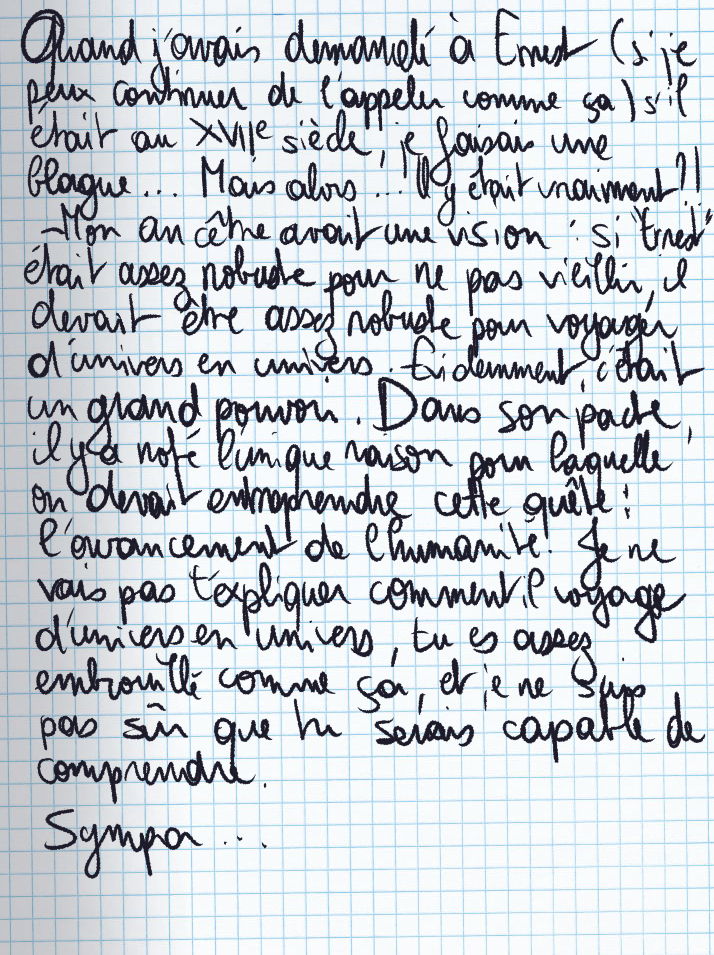 Quand j'avais demandé à Ernest (si je
peux continuer de l'appeler comme ça) s'il
était au XVIIe siècle, je faisais une
blague... Mais alors... Il y était vraiment?!
-Mon ancêtre avait une vision : si "Ernest"
était assez robuste pour ne pas vieillir, il
devait être assez robuste pour voyager
d'univers en univers. Évidemment, c'était
un grand pouvoir. Dans son pacte,
il y a noté l'unique raison pour laquelle
on devait entreprendre cette quête :
l'avancement de l'humanité. Je ne
vais pas t'expliquer comment il voyage
d'univers en univers, tu es assez
embrouillé comme ça, et je ne suis
pas sûr que tu serais capable de
comprendre.
Sympa...